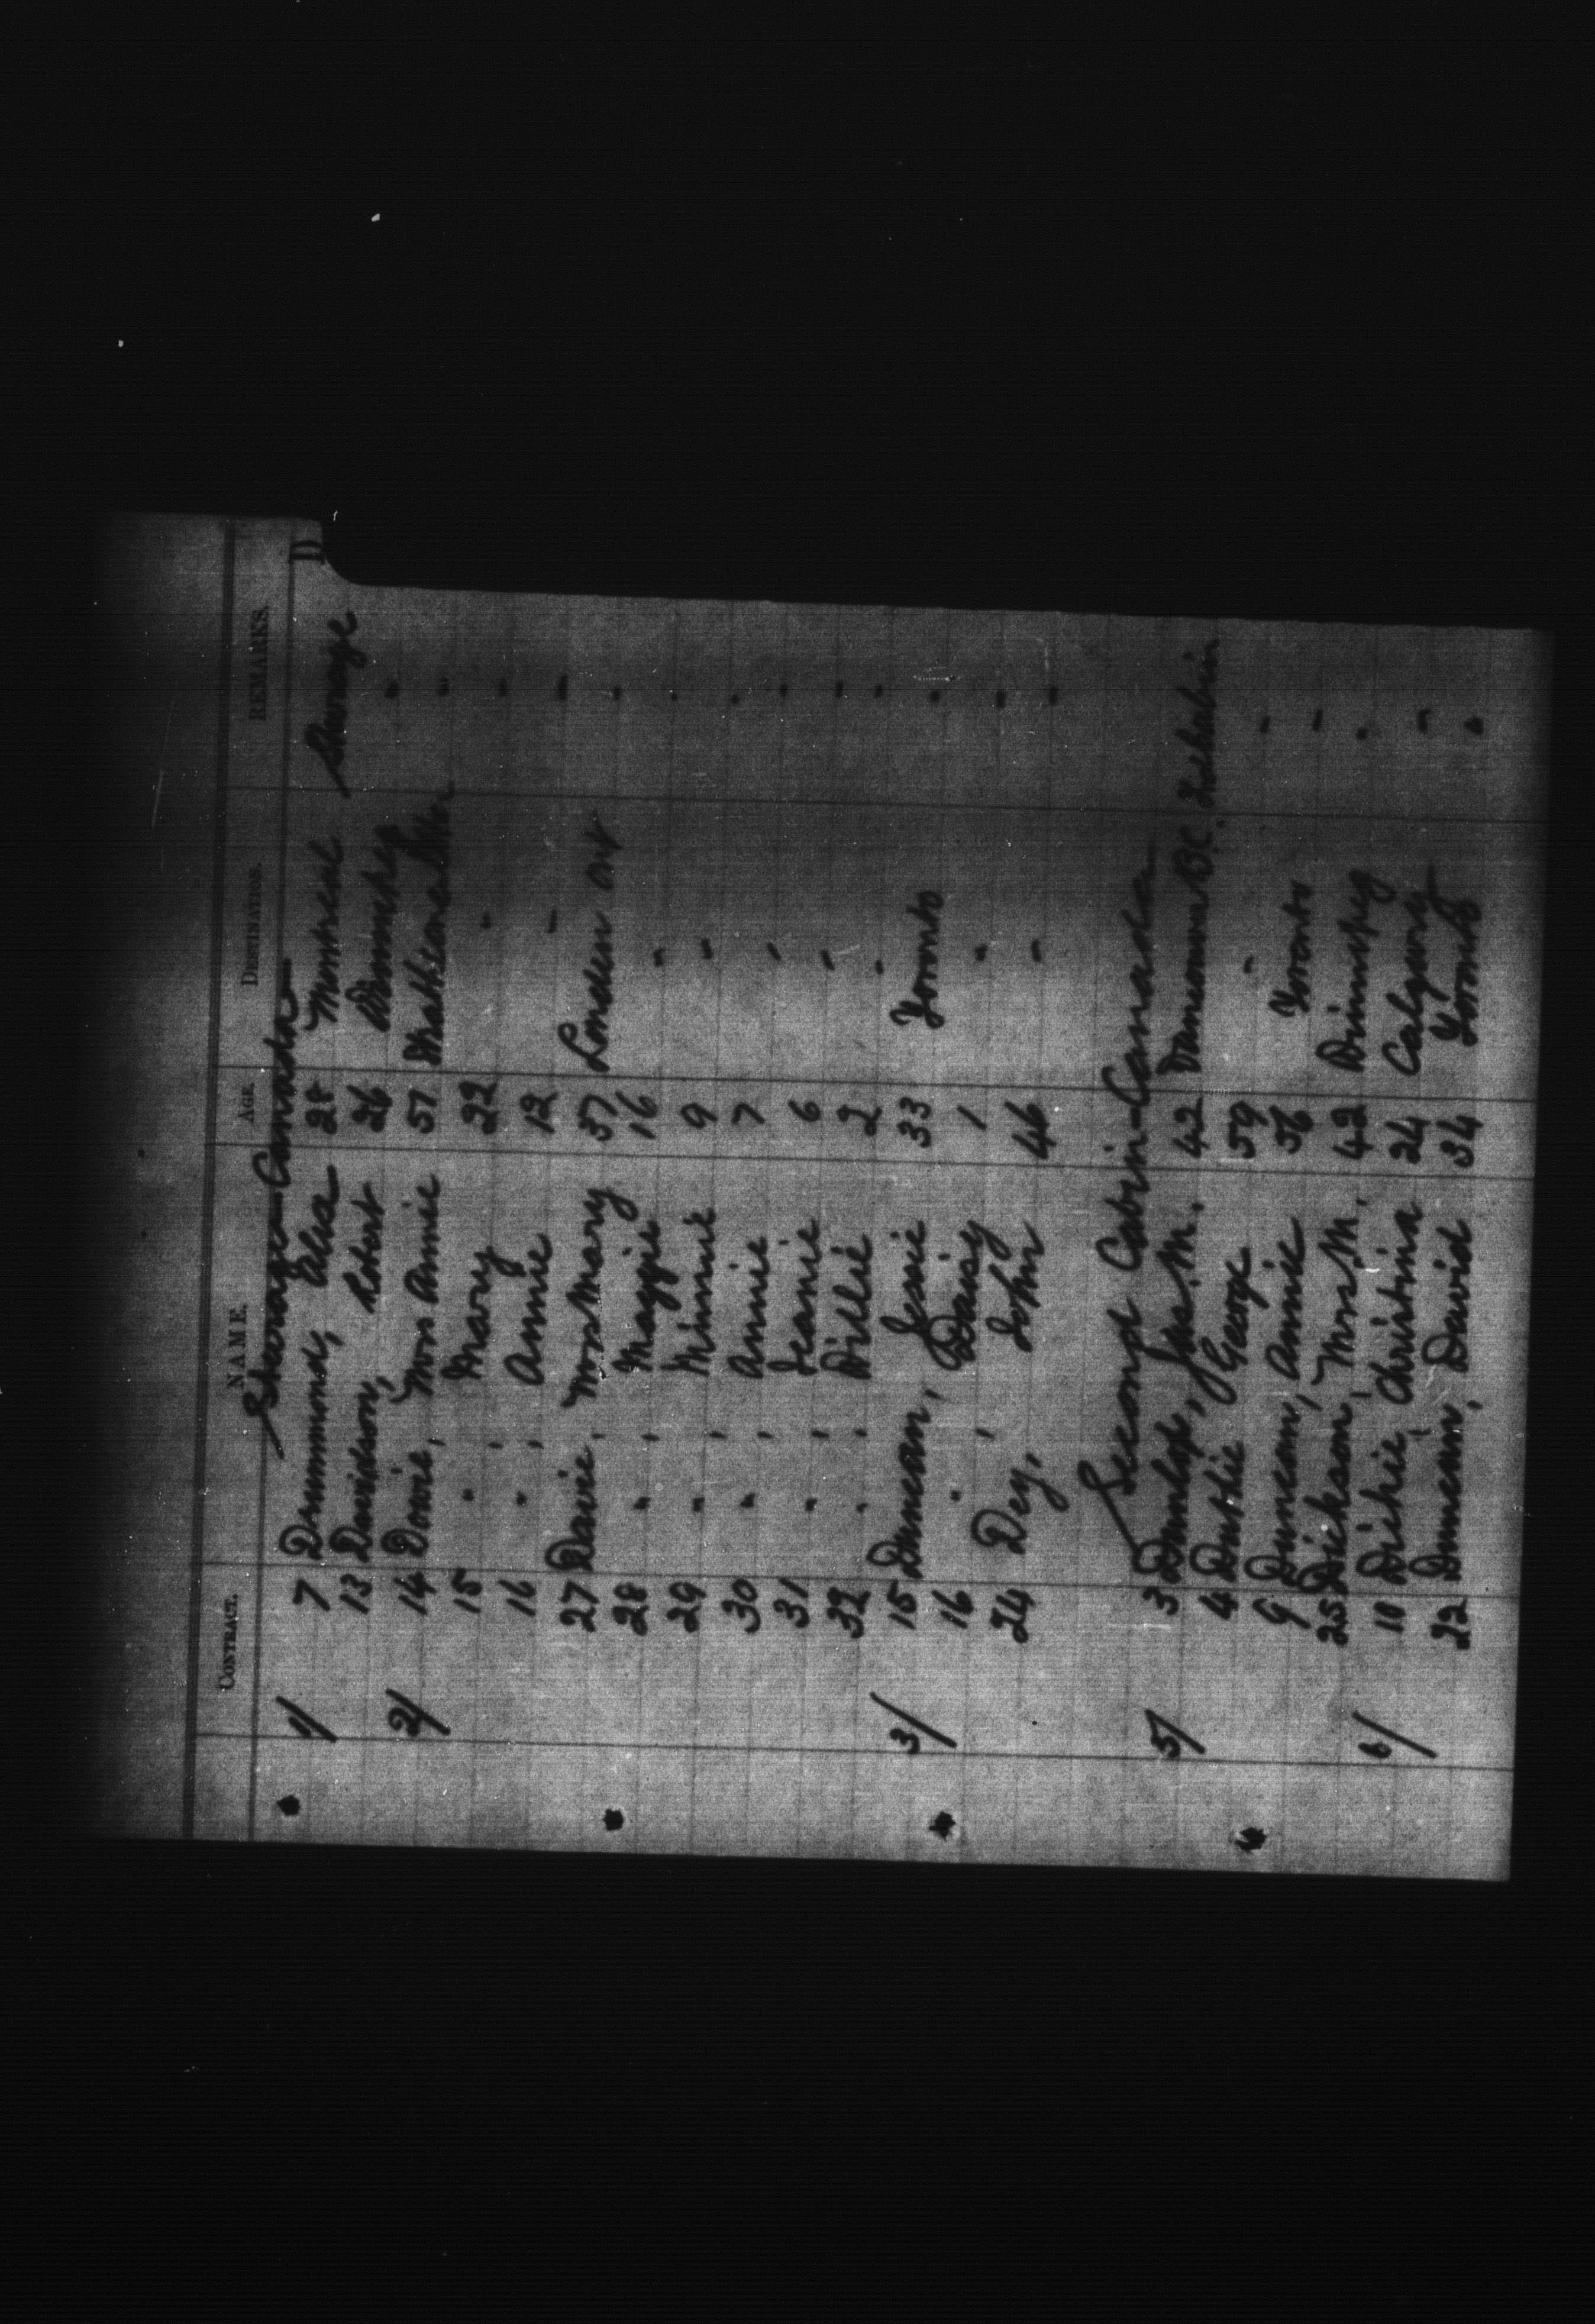 CONTRACT. NAME. AGE. DESTINATION. REMARKS.
D
Steerage - Canada
1/ 7 Drummond, Elsa 28 Montreal Steerage
13 Davidson, Robert 26 Winnipeg "
2/ 14 Dowie, Mrs Annie 57 "
15 " , Mary 22 " "
16 " , Annie 12 " "
27 Davie, Mrs Mary 37 London Ont "
28 " , Maggie 16 " "
29 " , Minnie 9 " "
30 " , Annie 7 " "
31 " , Jeanie 6 " "
32 " , Willie 2 " "
3/ 15 Duncan, Jessie 33 Toronto "
16 " , Daisy 1 " "
24 Dey, John 46 " "
Second Cabin - Canada
5/ 3 Dunlop, Jas. M. 42 Vancouver B.C. 2nd Cabin
4 Duthie, George 59 " "
9 Duncan, Annie 56 Toronto "
25 Dickson, Mrs M. 42 Winnipeg "
6/ 10 Dickie, Christina 24 Calgary "
22 Duncan, David 34 Toronto "